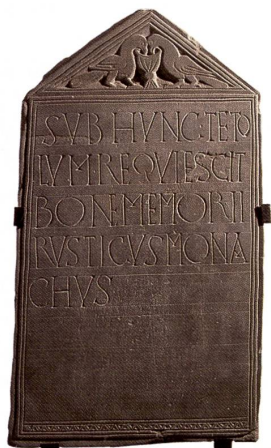 SVB HVNC TETO
LVM REQVIESCIT
BONI MEMORII
RVSTICVS MONA
CHVS